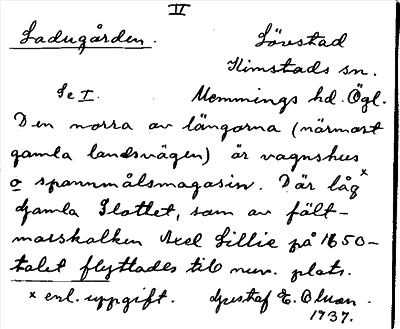 II
Ladugården. Lövstad
Kimstads sn.
Se I. Memmings hd. Ögl.
Den norra av längorna (närmast
gamla landsvägen) är vagnshus
o spannmålsmagasin. Där låg x
gamla Slottet, som av fält-
marskalken Axel Lillie på 1650-
talet flyttades till nuv. plats.
x enl. uppgift. Gustaf E. Olsson.
1937.